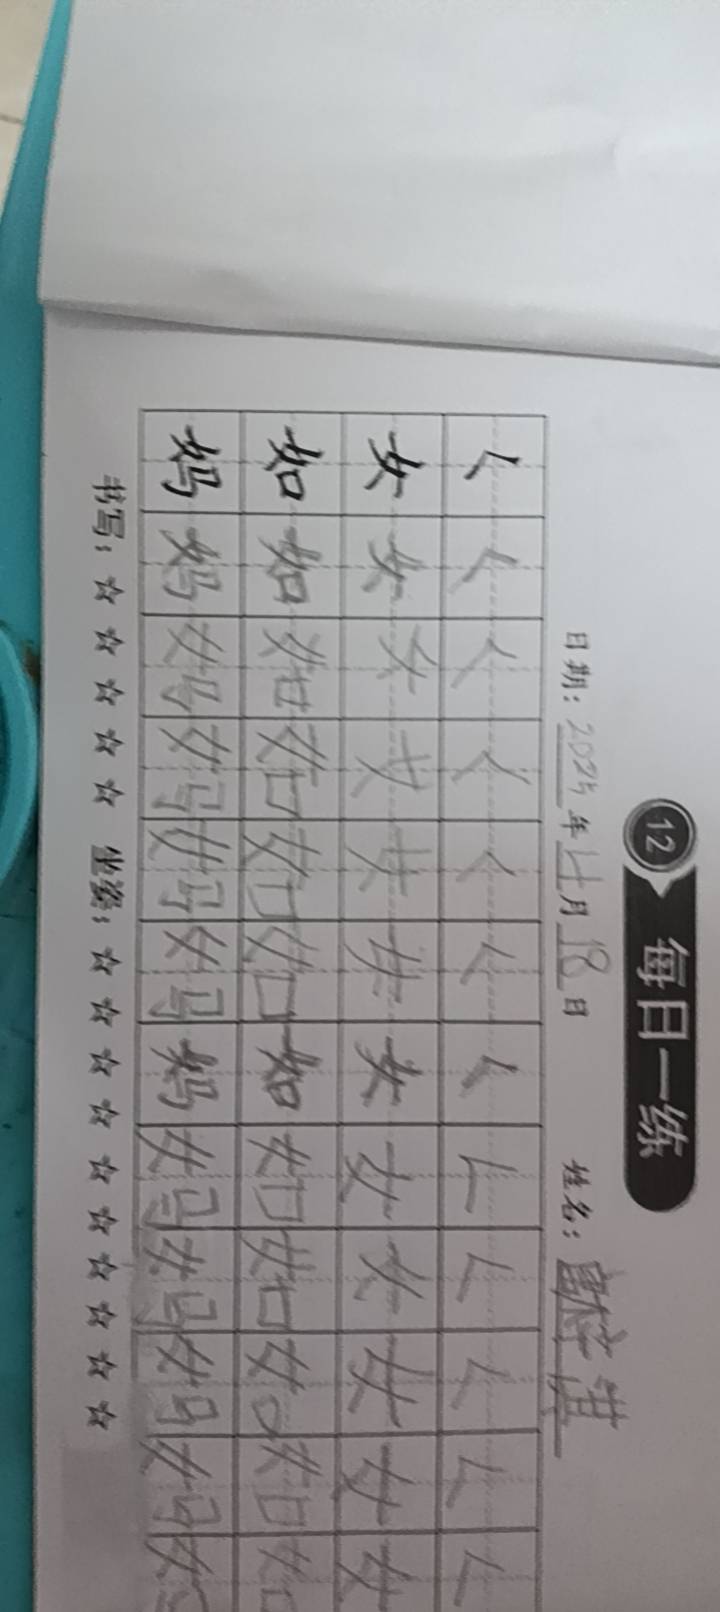 12 每日一练
日期：2025年七月18日 姓名：
𡿨 𡿨 𡿨 𡿨 𡿨 𡿨 𡿨 𡿨 𡿨 𡿨 𡿨 𡿨
女 女 女 女 女 女 女 女 女 女 女 女
如 如 如 如 如 如 如 如 如 如 如 如
妈 妈 妈 妈 妈 妈 妈 妈 妈 妈 妈
书写：☆ ☆ ☆ ☆ ☆ 坐姿：☆ ☆ ☆ ☆ ☆ ☆ ☆ ☆ ☆ ☆